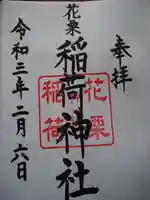 奉拝
花栗
稲荷神社
花栗
稲荷
令和三年二月六日